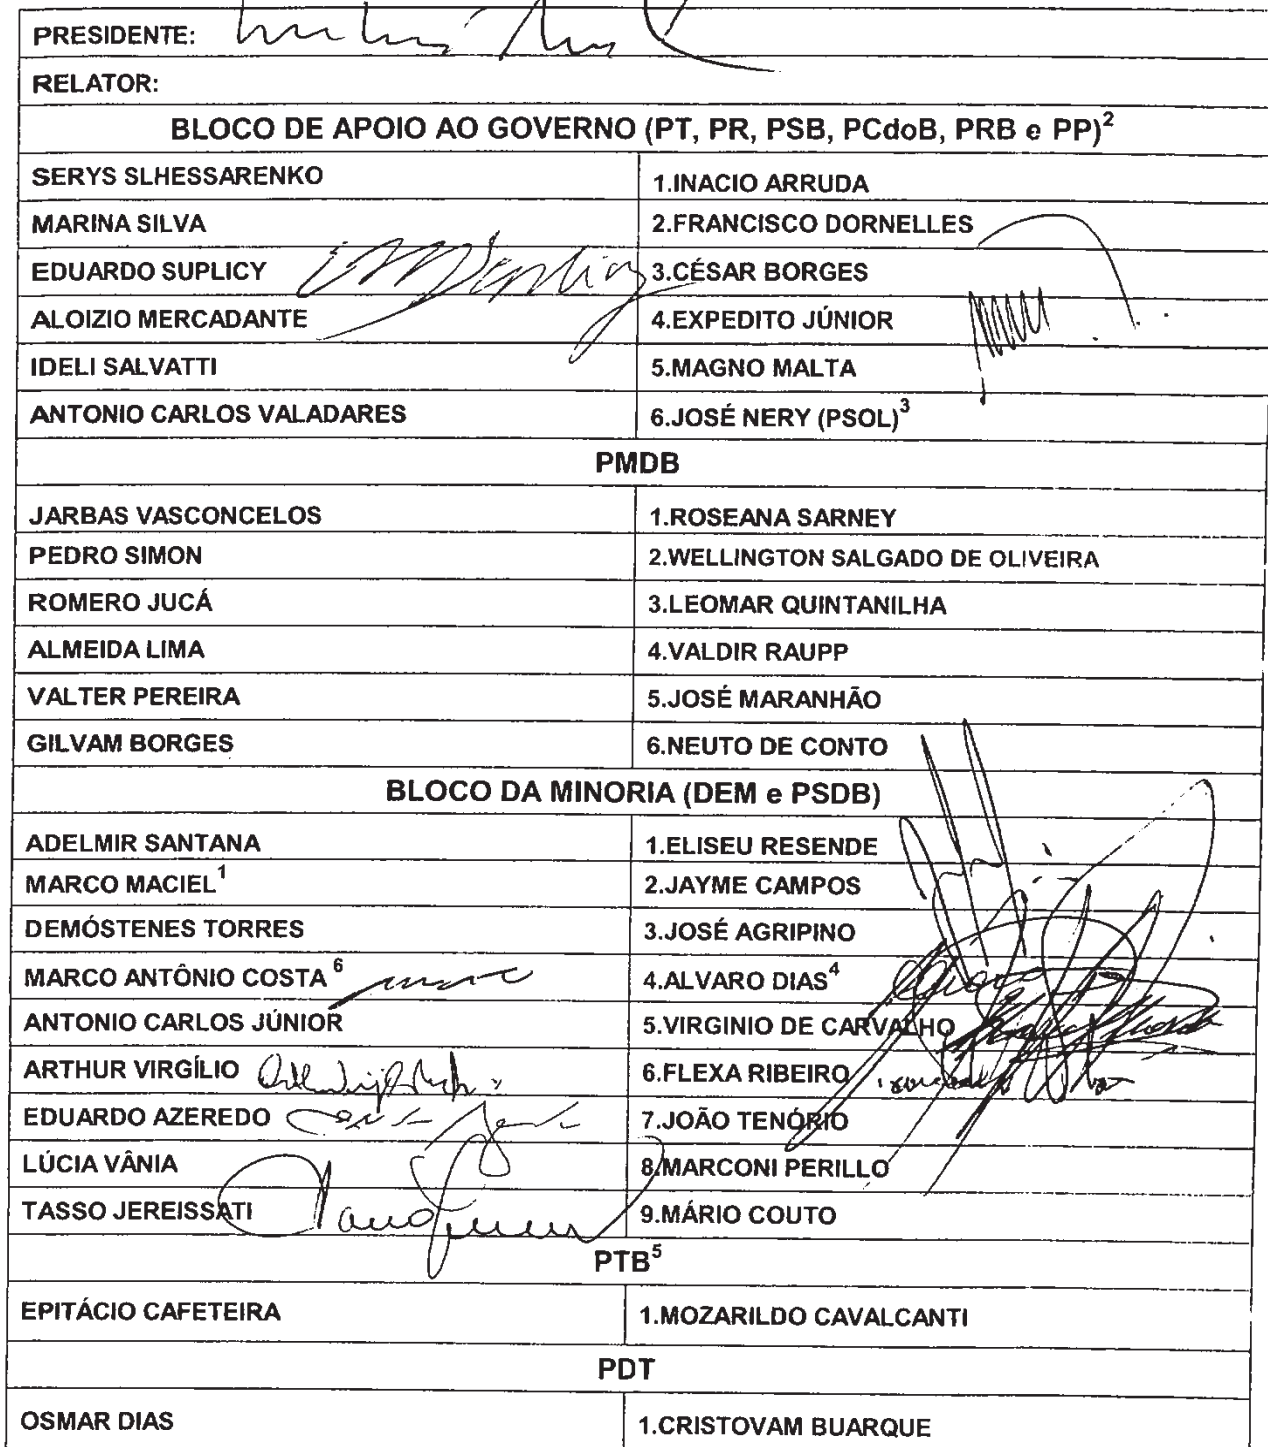 PRESIDENTE:
RELATOR:
BLOCO DE APOIO AO GOVERNO (PT, PR, PSB, PCdoB, PRB e PP)²
SERYS SLHESSARENKO 1.INACIO ARRUDA
MARINA SILVA 2.FRANCISCO DORNELLES
EDUARDO SUPLICY 3.CÉSAR BORGES
ALOIZIO MERCADANTE 4.EXPEDITO JÚNIOR
IDELI SALVATTI 5.MAGNO MALTA
ANTONIO CARLOS VALADARES 6.JOSÉ NERY (PSOL)³
PMDB
JARBAS VASCONCELOS 1.ROSEANA SARNEY
PEDRO SIMON 2.WELLINGTON SALGADO DE OLIVEIRA
ROMERO JUCÁ 3.LEOMAR QUINTANILHA
ALMEIDA LIMA 4.VALDIR RAUPP
VALTER PEREIRA 5.JOSÉ MARANHÃO
GILVAM BORGES 6.NEUTO DE CONTO
BLOCO DA MINORIA (DEM e PSDB)
ADELMIR SANTANA 1.ELISEU RESENDE
MARCO MACIEL¹ 2.JAYME CAMPOS
DEMÓSTENES TORRES 3.JOSÉ AGRIPINO
MARCO ANTÔNIO COSTA⁶ 4.ALVARO DIAS⁴
ANTONIO CARLOS JÚNIOR 5.VIRGINIO DE CARVALHO
ARTHUR VIRGÍLIO 6.FLEXA RIBEIRO
EDUARDO AZEREDO 7.JOÃO TENÓRIO
LÚCIA VÂNIA 8.MARCONI PERILLO
TASSO JEREISSATI 9.MÁRIO COUTO
PTB⁵
EPITÁCIO CAFETEIRA 1.MOZARILDO CAVALCANTI
PDT
OSMAR DIAS 1.CRISTOVAM BUARQUE